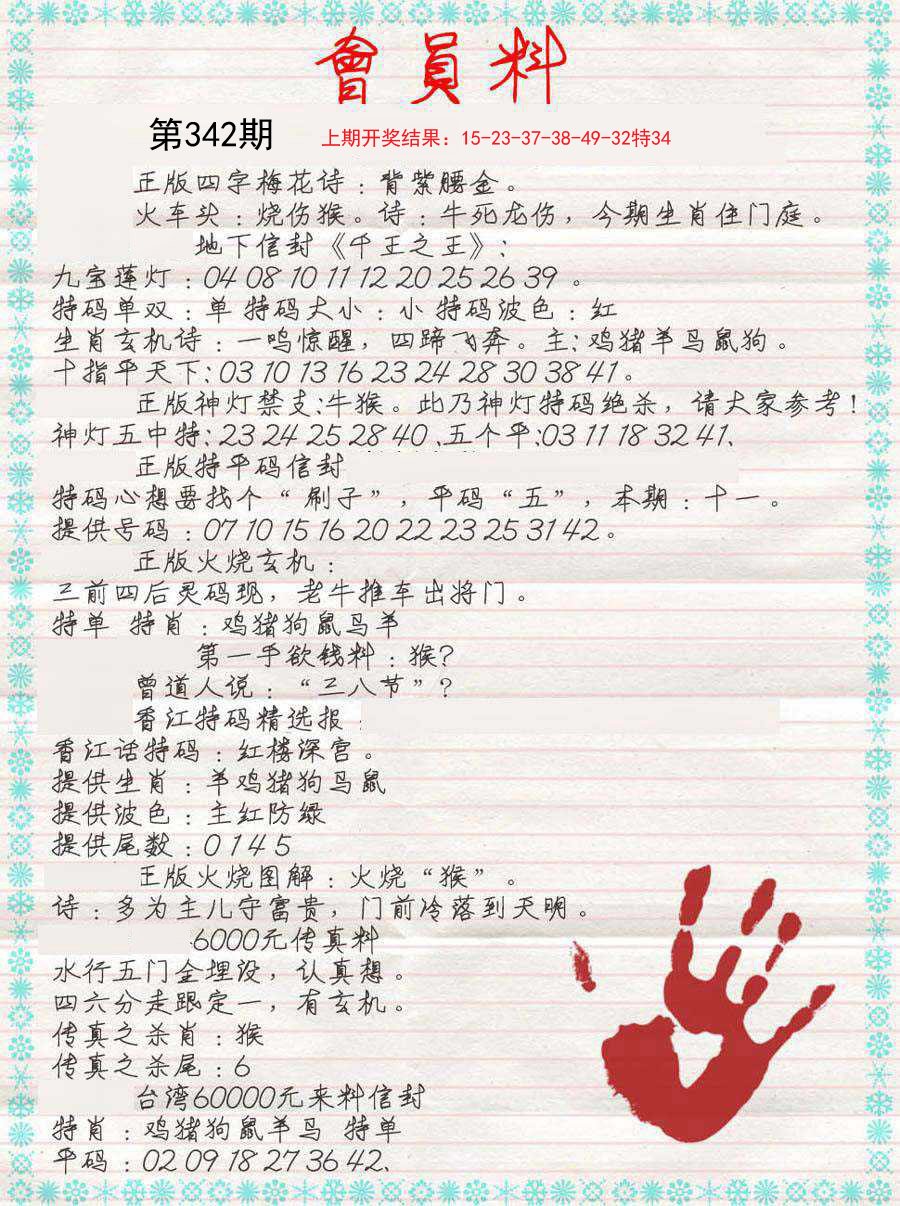 會員料
第342期 上期开奖结果：15-23-37-38-49-32特34
正版四字梅花诗：背紫腰金。
火车头：烧伤猴。诗：牛死龙伤，今期生肖住门庭。
地下信封《千王之王》：
九宝莲灯：04 08 10 11 12 20 25 26 39 。
特码单双：单 特码大小：小 特码波色：红
生肖玄机诗：一鸣惊醒，四蹄飞奔。主：鸡猪羊马鼠狗。
十指平天下：03 10 13 16 23 24 28 30 38 41。
正版神灯禁支：牛猴。此乃神灯特码绝杀，请大家参考！
神灯五中特：23 24 25 28 40 、五个平：03 11 18 32 41、
正版特平码信封
特码心想要找个“刷子”，平码“五”，本期：十一。
提供号码：07 10 15 16 20 22 23 25 31 42。
正版火烧玄机：
三前四后灵码现，老牛推车出将门。
特单 特肖：鸡猪狗鼠马羊
第一手欲钱料：猴？
曾道人说：“三八节”？
香江特码精选报：
香江话特码：红楼深宫。
提供生肖：羊鸡猪狗马鼠
提供波色：主红防绿
提供尾数：0 1 4 5
正版火烧图解：火烧“猴”。
诗：多为主儿守富贵，门前冷落到天明。
6000元传真料
水行五门金埋设，认真想。
四六分走跟定一，有玄机。
传真之杀肖：猴
传真之杀尾：6
台湾60000元来料信封
特肖：鸡猪狗鼠羊马 特单
平码：02 09 18 27 36 42、